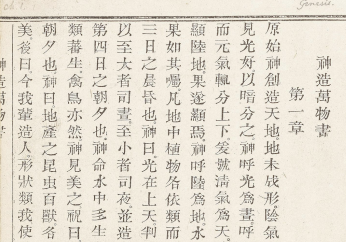 Genesis.
神造萬物書
第一章
原始神創造天地地未成形陰氣
見光好以暗分之神呼光為晝呼
而元氣輒分上下爰號清氣為天
顯陸地果遂顯焉神呼陸為地水
果如其囑凡地中植物各依類而
三日之晨昏也神曰光在上天判
以至大者司晝至小者司夜並造
第四日之朝夕也神命水中多生
類蕃生禽鳥亦然神見美之祝曰
朝夕也神曰地產之昆虫百獸各
美後曰今我輩造人形狀類我使
神造萬物書
ch 1.